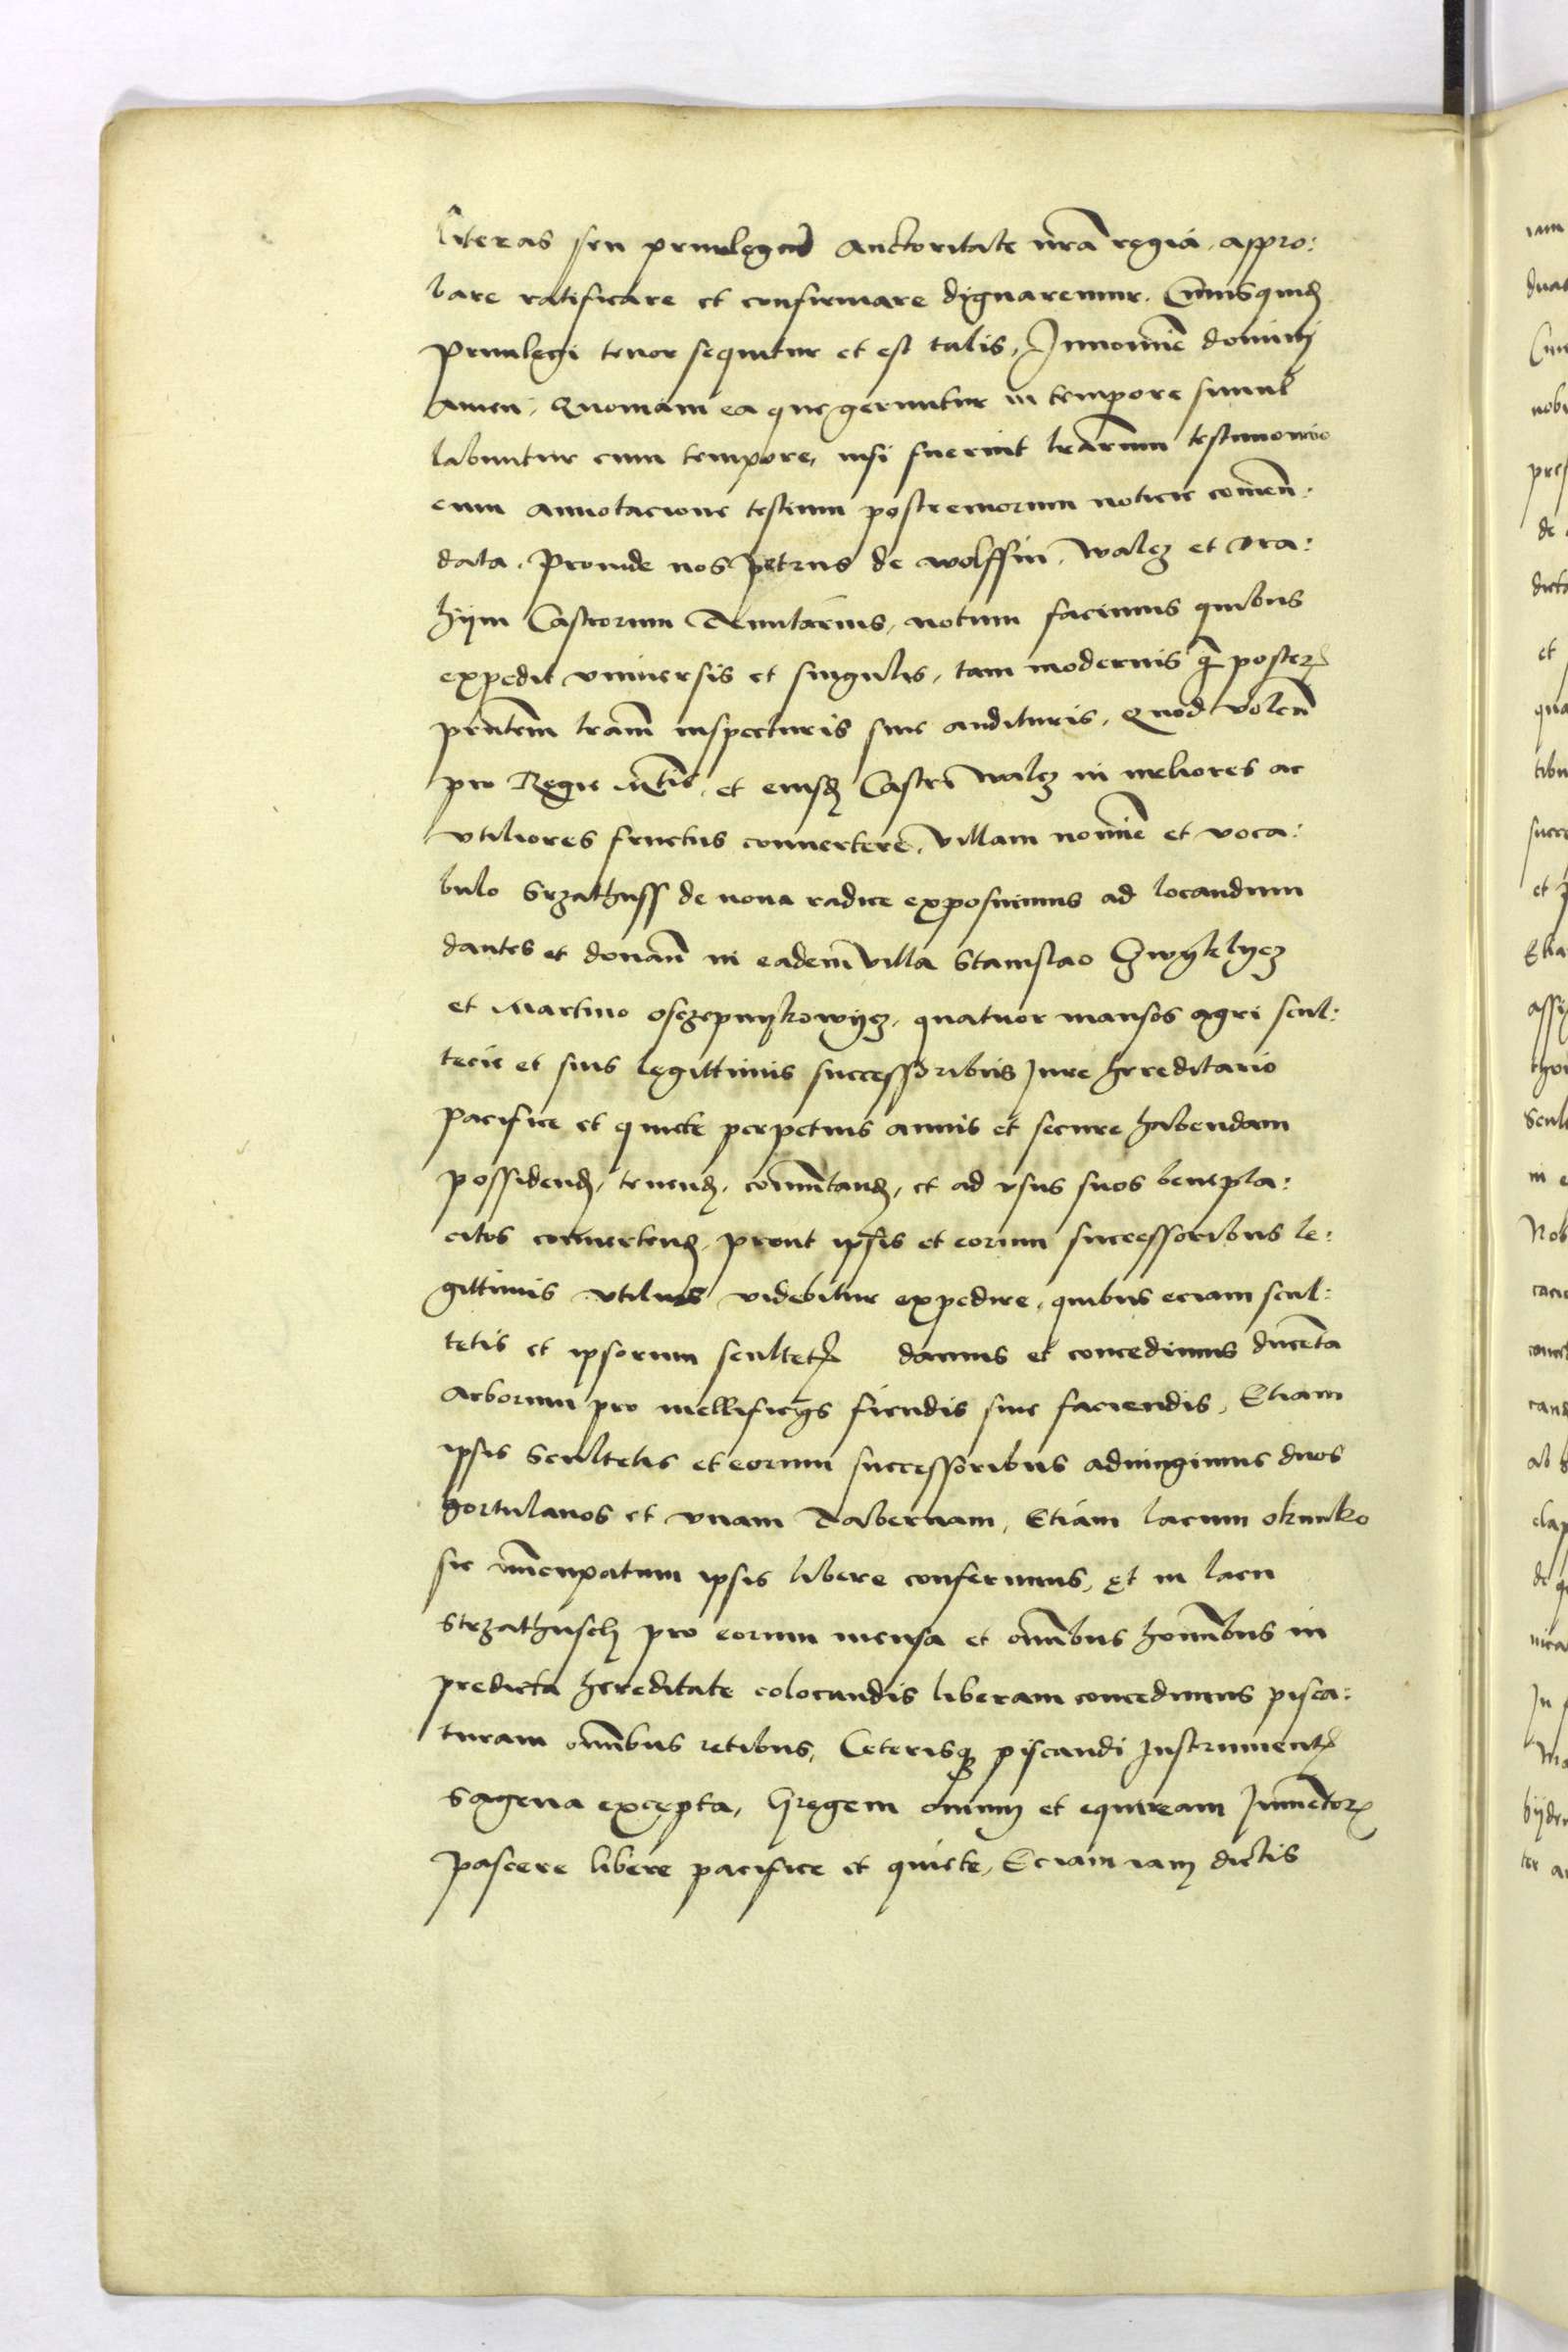 literas seu priuilegia auctoritate nrã regia, appro:
bare ratificare et confirmare dignaremur. Cuiusquid
Priuilegi tenor sequitur et est talis, Innomiē domini
amen, Quoniam ea que geruntur in tempore simul
labuntur cum tempore, nisi fuerint lrārum testimonio
cum annotacione testium postremorum noticie comēn:
data, Proinde nos Petrus de wolffin, walcz et Dra:
hijm Castrorum Tenutarius, notum facimus quibus
expedit vniuersis et singulis, tam modernis q̄ poster
pn̄tem lrām inspecturis siue audituris, Quod volen̄
pro Regie Mtis, et eiusd Castri walcz in meliores ac
vtiliores fructus conuertere, villam nomiē et voca:
bulo Srzathuss de noua radice exposuimus ad locandum
dantes et donan̄ in eadem villa Stanislao
et Martino osczepnijkowijcz, quatuor mansos agri scul:
tecie et suis legittimis successoribus Jure hereditario
pacifice et quiete perpetuis annis et secure habendam
possidend, tenend, comūtand, et ad vsus suos benepla:
citos conuertend, prout ipsis et eorum successoribus le:
gittimis vtilius videbitur expedire, quibus eciam scul:
tetis et ipsorum scultet damus et concedimus ducēta
arborum pro mellificijs fiendis siue faciendis, Etiam
ipsis Scultetis et eorum successoribus adiungimus duos
hortulanos et vnam Tabernam, Etiam lacum okunko
sic nūcupatum ipsis libere conferimus, et in lacu
Strzathusch pro eorum mensa et om̄ibus hom̄ibus in
predicta hereditate colocandis liberam concedimus pisca:
turam om̄ibus retibus, Ceterisq piscandi Instrument
sagena excepta, Gregem ouium et equiream Jumētor
pascere libere pacifice et quiete, Eciam iam dictis